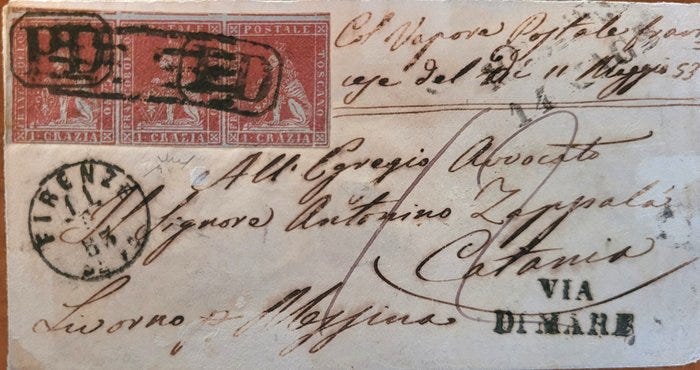 POSTALE POSTALE POSTALE
FRANCOBOLLO TOSCANO
1 CRAZIA 1 CRAZIA 1 CRAZIA
PD PD
Col Vapore Postale fran
cese del dì 11 Maggio 53
14
FIRENZE
53
All'Egregio Avvocato
Il Signore Antonino Zappalá
Catania
Livorno p Messina
VIA
DI MARE